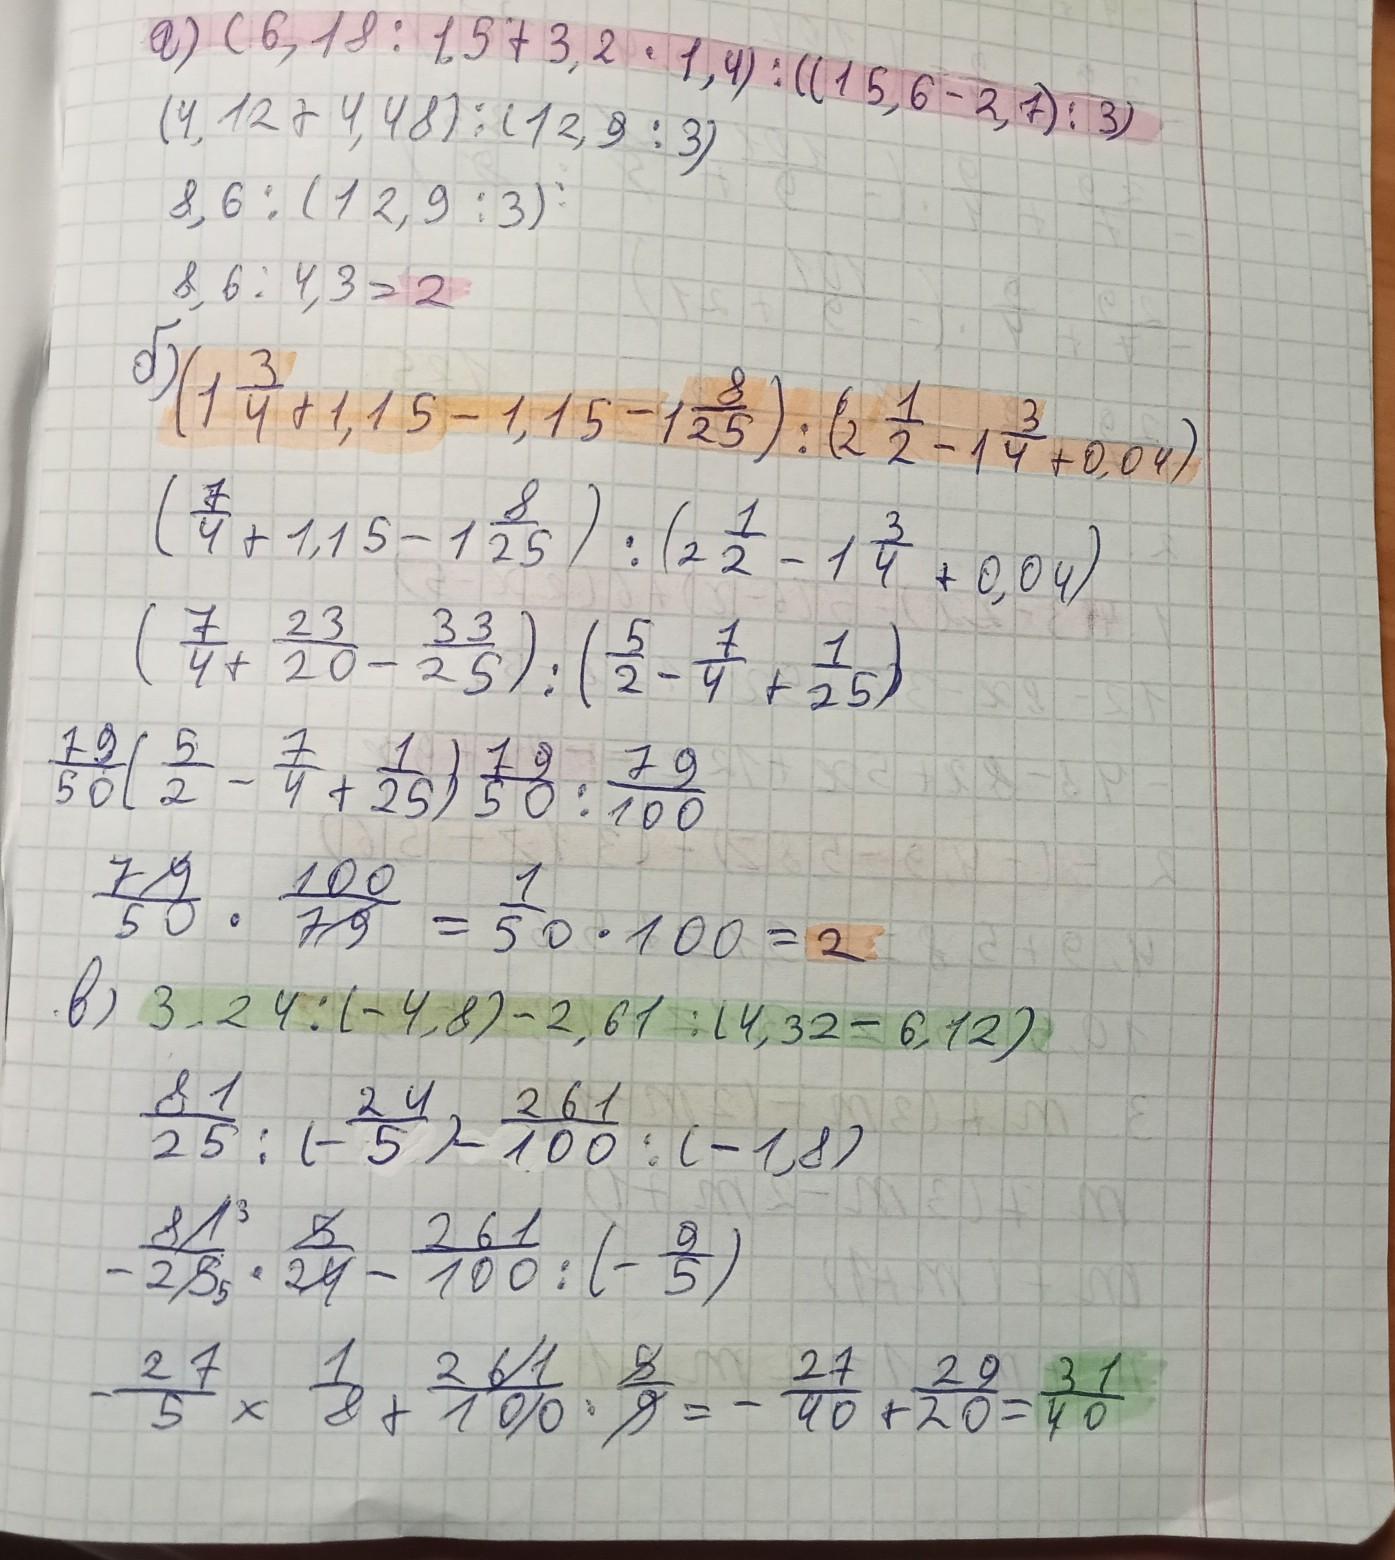 а) (6,18 : 1,5 + 3,2 · 1,4) : ((15,6 - 2,7) : 3)
(4,12 + 4,48) : (12,9 : 3)
8,6 : (12,9 : 3) :
8,6 : 4,3 = 2
б) (1 3/4 + 1,15 - 1,15 - 1 8/25) : (2 1/2 - 1 3/4 + 0,04)
(7/4 + 1,15 - 1 8/25) : (2 1/2 - 1 3/4 + 0,04)
(7/4 + 23/20 - 33/25) : (5/2 - 7/4 + 1/25)
79/50 (5/2 - 7/4 + 1/25) 79/50 : 79/100
79/50 · 100/79 = 1/50 · 100 = 2
в) 3.24 : (-4,8) - 2,61 : (4,32 - 6,12)
81/25 : (-24/5) - 261/100 : (-1,8)
-81 3/25 5 · 5/24 - 261/100 : (-9/5)
-27/5 × 1/8 + 261/100 · 5/9 = -27/40 + 29/20 = 31/40